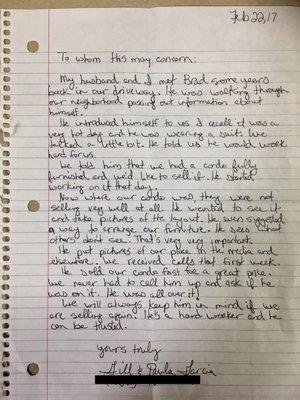 Feb 22, 17
To whom this may concern:
My husband and I met Brad some years
back in our driveway. He was walking through
our neighborhood passing out information about
himself.
He introduced himself to us I recall it was a
very hot day and he was wearing a suit. We
talked a little bit. He told us he would work
hard for us.
We told him that we had a condo fully
furnished and we'd like to sell it. He started
working on it that day.
Now where our condo was, they were not
selling very well at all. He wanted to see it
and take pictures of the layout. He even suggested
a way to arrange our furniture. He sees what
others don't see. That's very very important.
He put pictures of our place in the media and
elsewhere. We received calls that first week.
He sold our condo fast for a great price.
We never had to call him up and ask if he
was on it. He was all over it!
We will always keep him in mind if we
are selling again. He's a hard worker and he
can be trusted.
Yours truly
& Paula Garcia